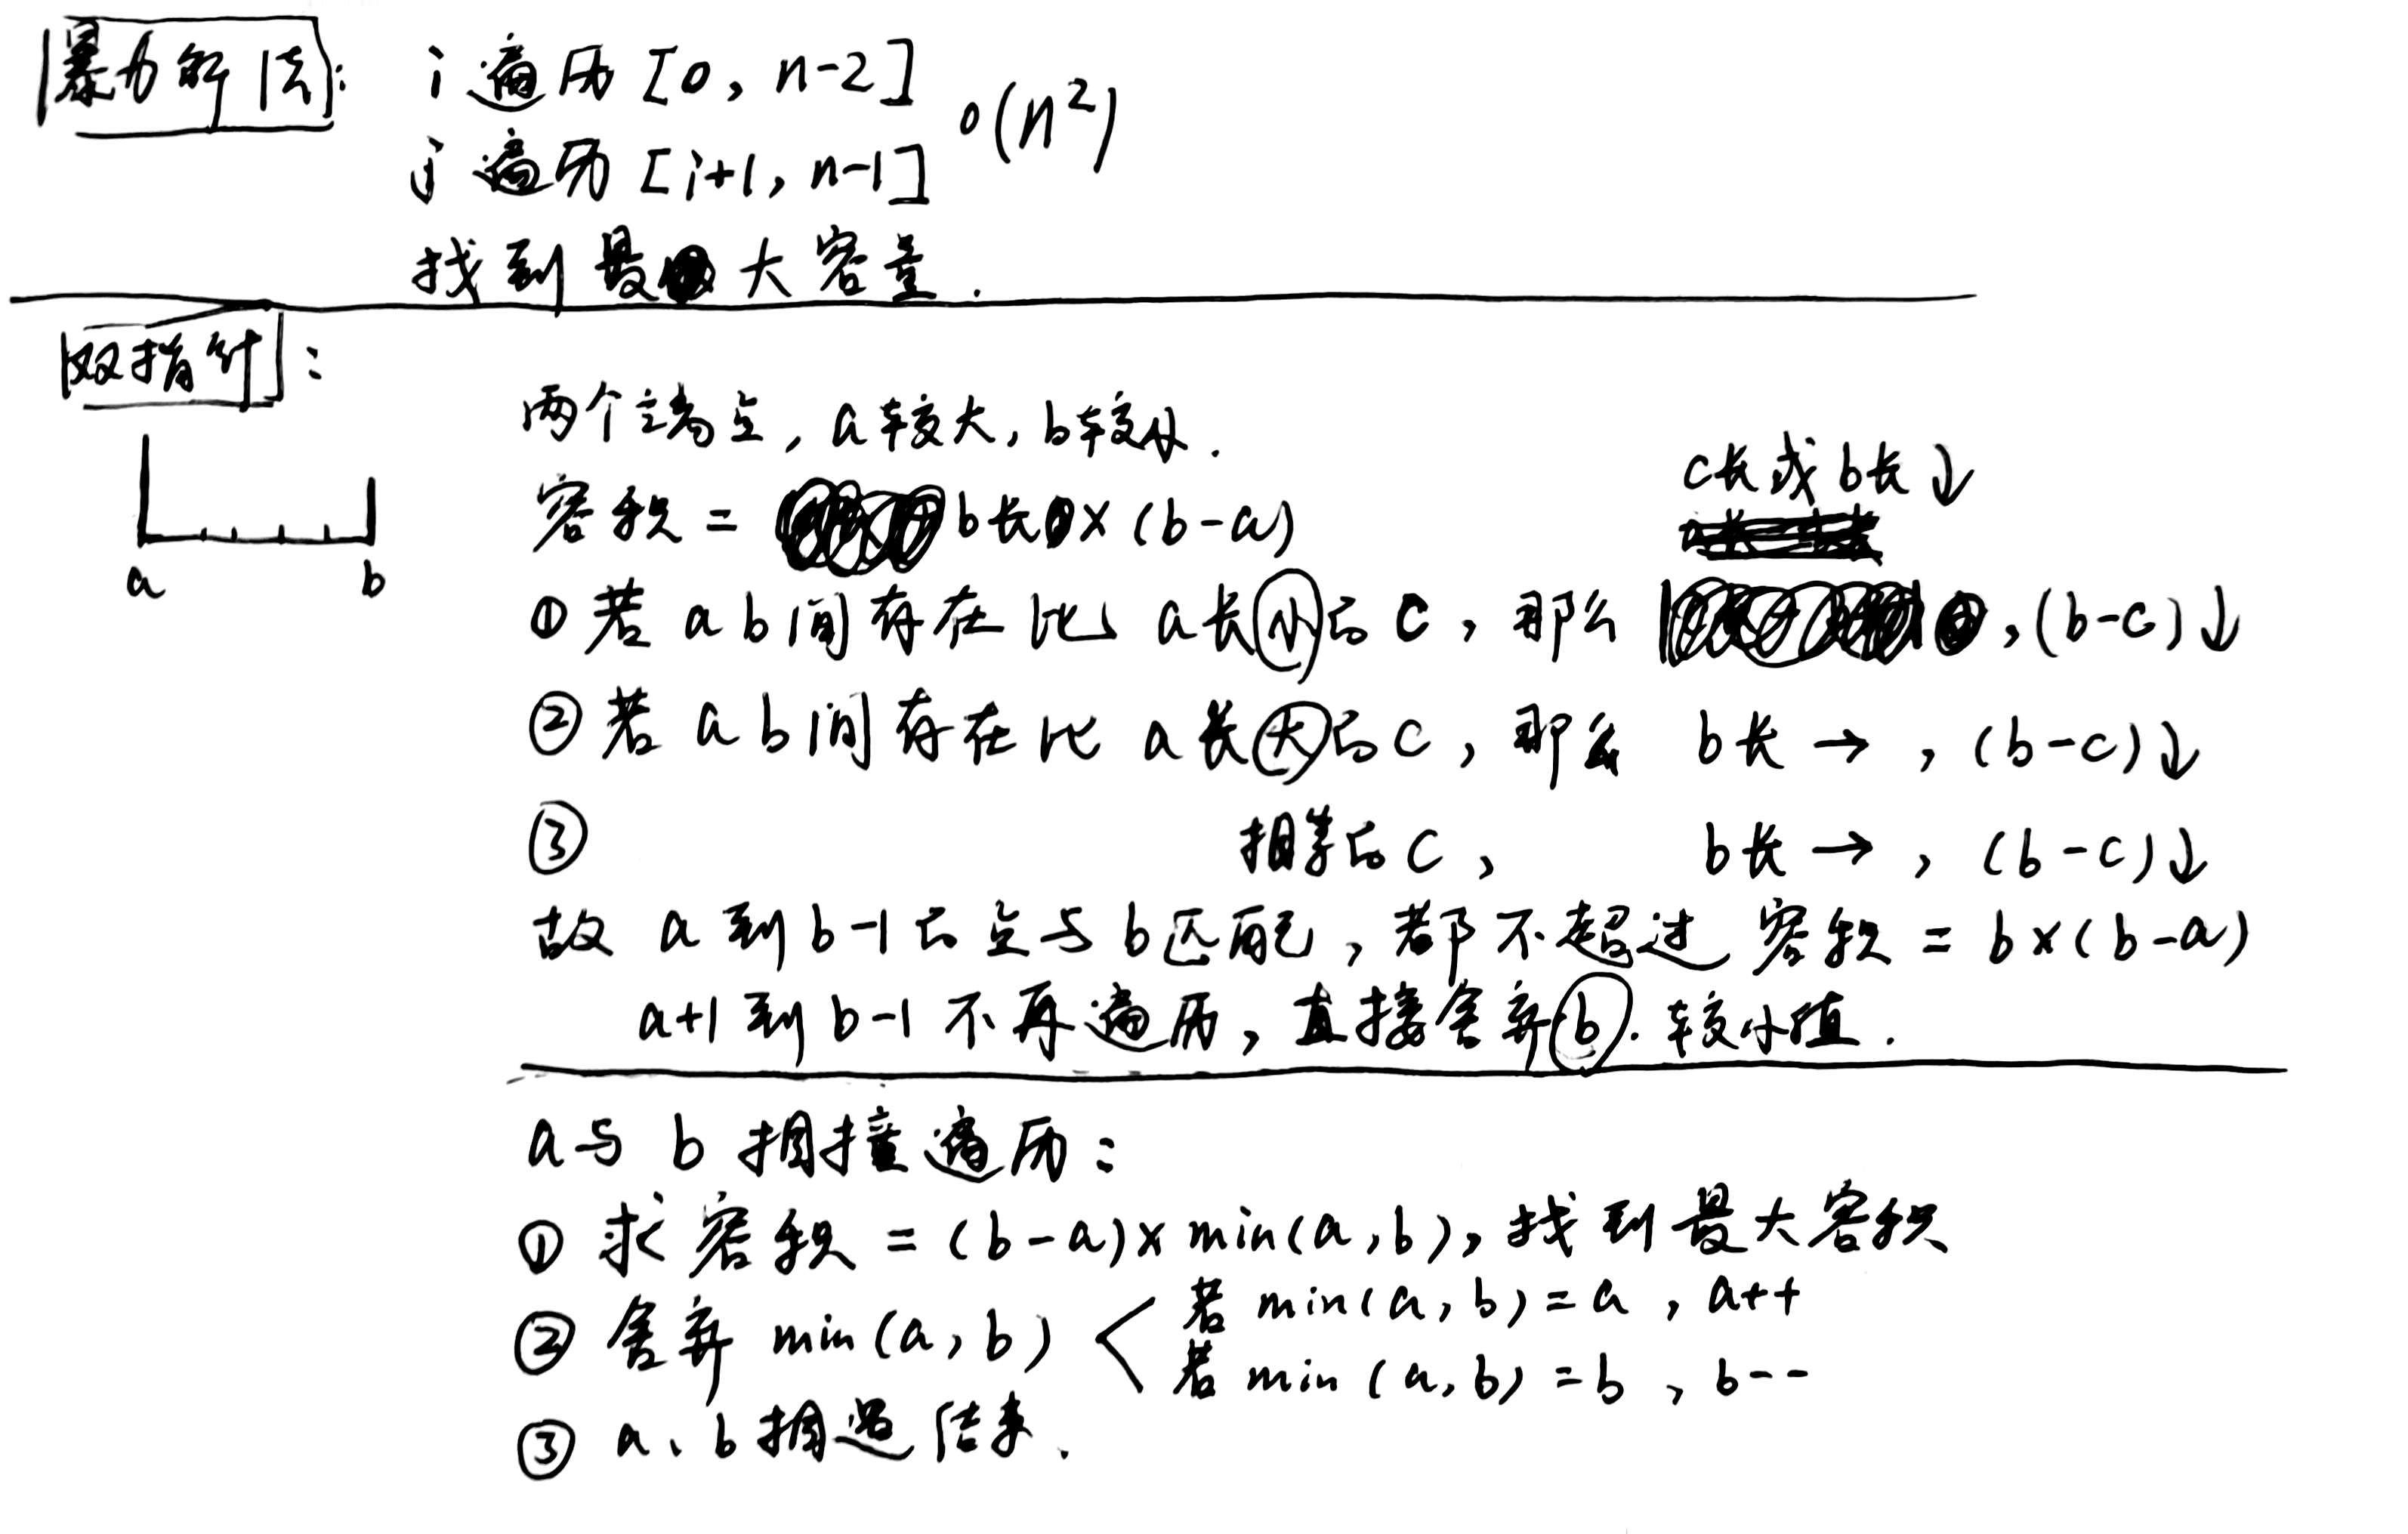 暴力解法: i 遍历 [0, n-2]
j 遍历 [i+1, n-1]
o(n²)
找到最大容量.
双指针:
两个端点, a较大, b较小.
容积 = b长 × (b-a)
a b
c长或b长↓
① 若 a b 间存在比 a长小的 c, 那么 , (b-c)↓
② 若 a b 间存在比 a长大的 c, 那么 b长 → , (b-c)↓
③ 相等的 c, b长 → , (b-c)↓
故 a 到 b-1 的点与 b 匹配, 都不超过 容积 = b×(b-a)
a+1 到 b-1 不再遍历, 直接舍弃 b. 较小值.
a与 b 相撞遍历:
① 求容积 = (b-a)× min(a,b), 找到最大容积
② 舍弃 min(a,b) < 若 min(a,b)=a , a++
若 min(a,b)=b , b--
③ a、b相遇结束.